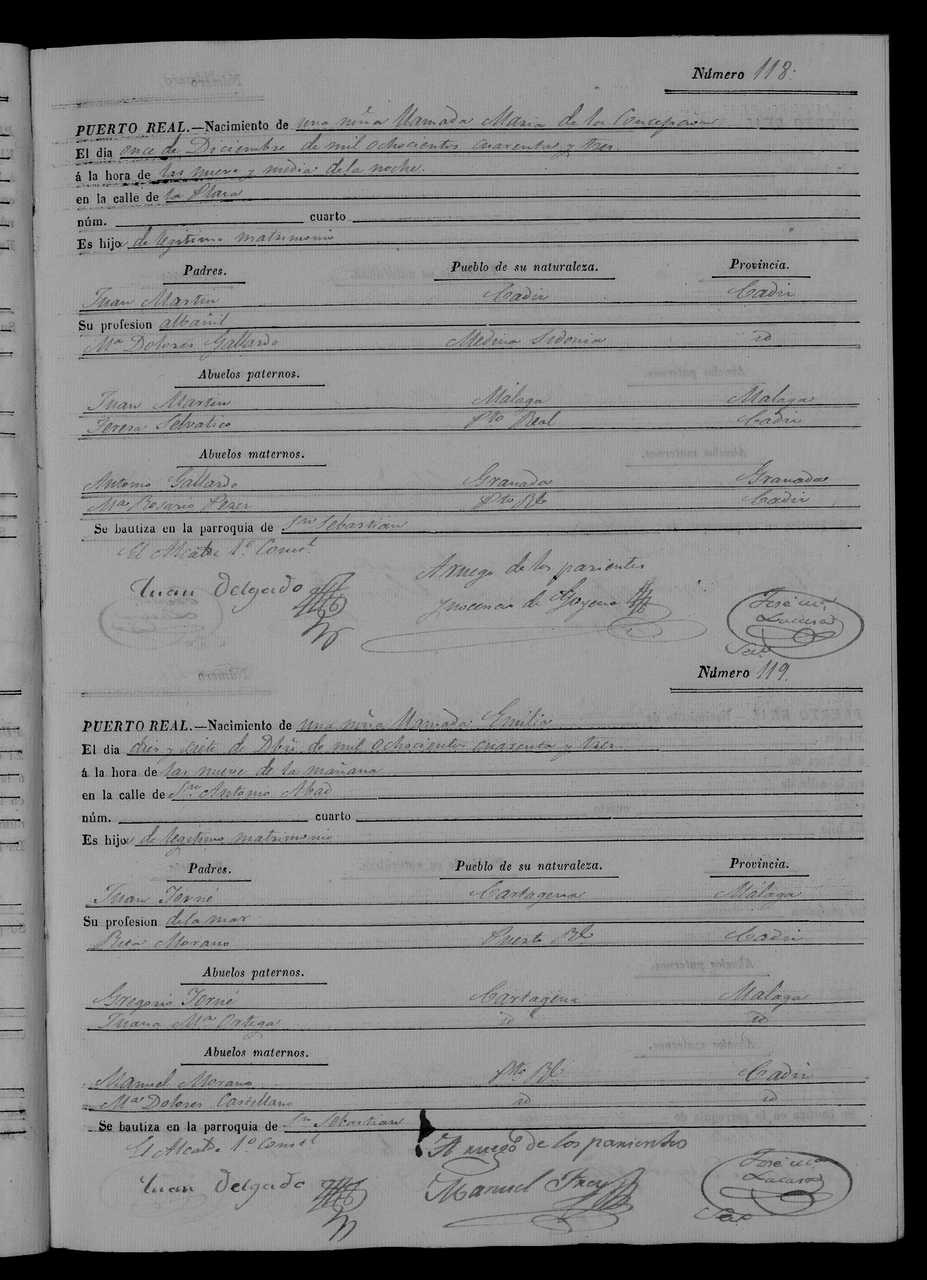 Número 118.
PUERTO REAL.—Nacimiento de una niña llamada Maria de la Concepcion
El dia once de Diciembre de mil ochocientos cuarenta y tres
á la hora de las nueve y media de la noche.
en la calle de la Plaza
núm. cuarto
Es hija de legitimo matrimonio
Padres. Pueblo de su naturaleza. Provincia.
Juan Martin Cadiz Cadiz
Su profesion albañil
Mª Dolores Gallardo Medina Sidonia id
Abuelos paternos.
Juan Martin Málaga Malaga
Teresa Selvatico Pto Real Cadiz
Abuelos maternos.
Antonio Gallardo Granada Granada
Mª Rosario Perez Pto Rl Cadiz
Se bautiza en la parroquia de Sn Sebastian
El Alcalde 1º Const.l
A ruego de los parientes
Juan Delgado Ynocencio de Goyena José Mª
Lucusa
Número 119.
PUERTO REAL.—Nacimiento de una niña llamada Emilia
El dia diez y siete de Dbre de mil ochocientos cuarenta y tres
á la hora de las nueve de la mañana
en la calle de Sn Antonio Abad
núm. cuarto
Es hija de legitimo matrimonio
Padres. Pueblo de su naturaleza. Provincia.
Juan Torné Cartagena Malaga
Su profesion de la mar
Rita Morano Puerto Rl Cadiz
Abuelos paternos.
Gregorio Torné Cartagena Malaga
Juana Mª Ortega id id
Abuelos maternos.
Manuel Morano Pto Rl Cadiz
Mª Dolores Castellano id id
Se bautiza en la parroquia de Sn Sebastian
El Alcalde 1º Const.l A ruego de los parientes
Juan Delgado Manuel José Mª